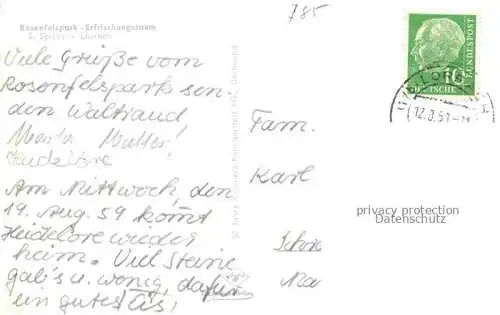 785
Rosenfelspark - Erfrischungsraum
S. Spirin - Lörrach
Viele Grüße vom
Rosenfelspark sen-
den Waltraud,
Maria Mutter
Heidelore
Am Mittwoch, den
19. Aug. 59 kommt
Heidelore wieder
heim. Viel Steine
gab's u. wenig, dafür
ein gutes Eis!
Fam.
Karl
DEUTSCHE
BUNDESPOST
10
12.8.59
privacy protection
Datenschutz